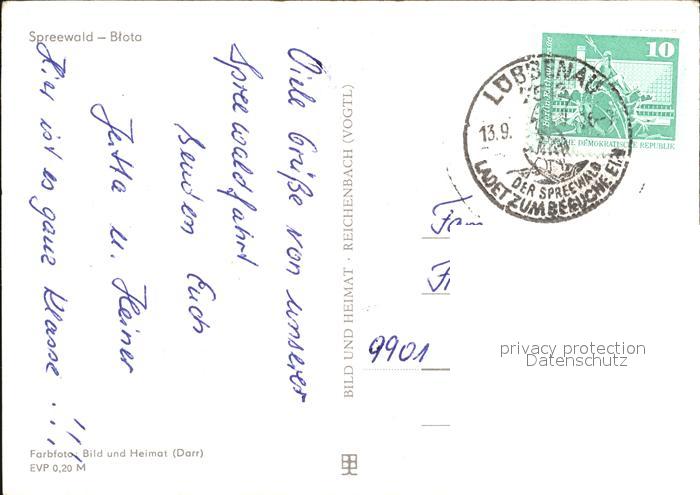 Spreewald – Błota
Viele Grüße von unserer
Spreewaldfahrt
senden Euch
Jutta u. Heiner
Hier ist es ganz Klasse!!!
Farbfoto: Bild und Heimat (Darr)
EVP 0,20 M
BILD UND HEIMAT · REICHENBACH (VOGTL)
10
DEMOKRATISCHE REPUBLIK
LÜBBENAU
13.9.
DER SPREEWALD
LADET ZUM BESUCHE EIN
Fam
9901
privacy protection
Datenschutz